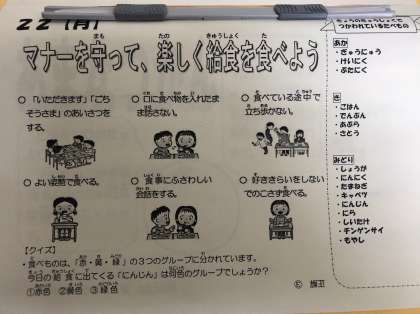 22 (月)
マナーを守って、楽しく給食を食べよう
○「いただきます」「ごち
そうさま」のあいさつを
する。
○ 口に食べ物を入れたま
ま話さない。
○ 食べている途中で
立ち歩かない。
○ よい姿勢で食べる。
○ 食事にふさわしい
会話をする。
○ 好ききらいをしない
でのこさず食べる。
【クイズ】
・食べものは、「赤・黄・緑」の3つのグループに分かれています。
今日の給食に出てくる「にんじん」は何色のグループでしょうか?
①赤色 ②黄色 ③緑色
きょうのきゅうしょくで
つかわれているたべもの
あか
・ぎゅうにゅう
・けいにく
・ぶたにく
き
・ごはん
・でんぷん
・あぶら
・さとう
みどり
・しょうが
・にんにく
・たまねぎ
・キャベツ
・にんじん
・にら
・しいたけ
・チンゲンサイ
・もやし